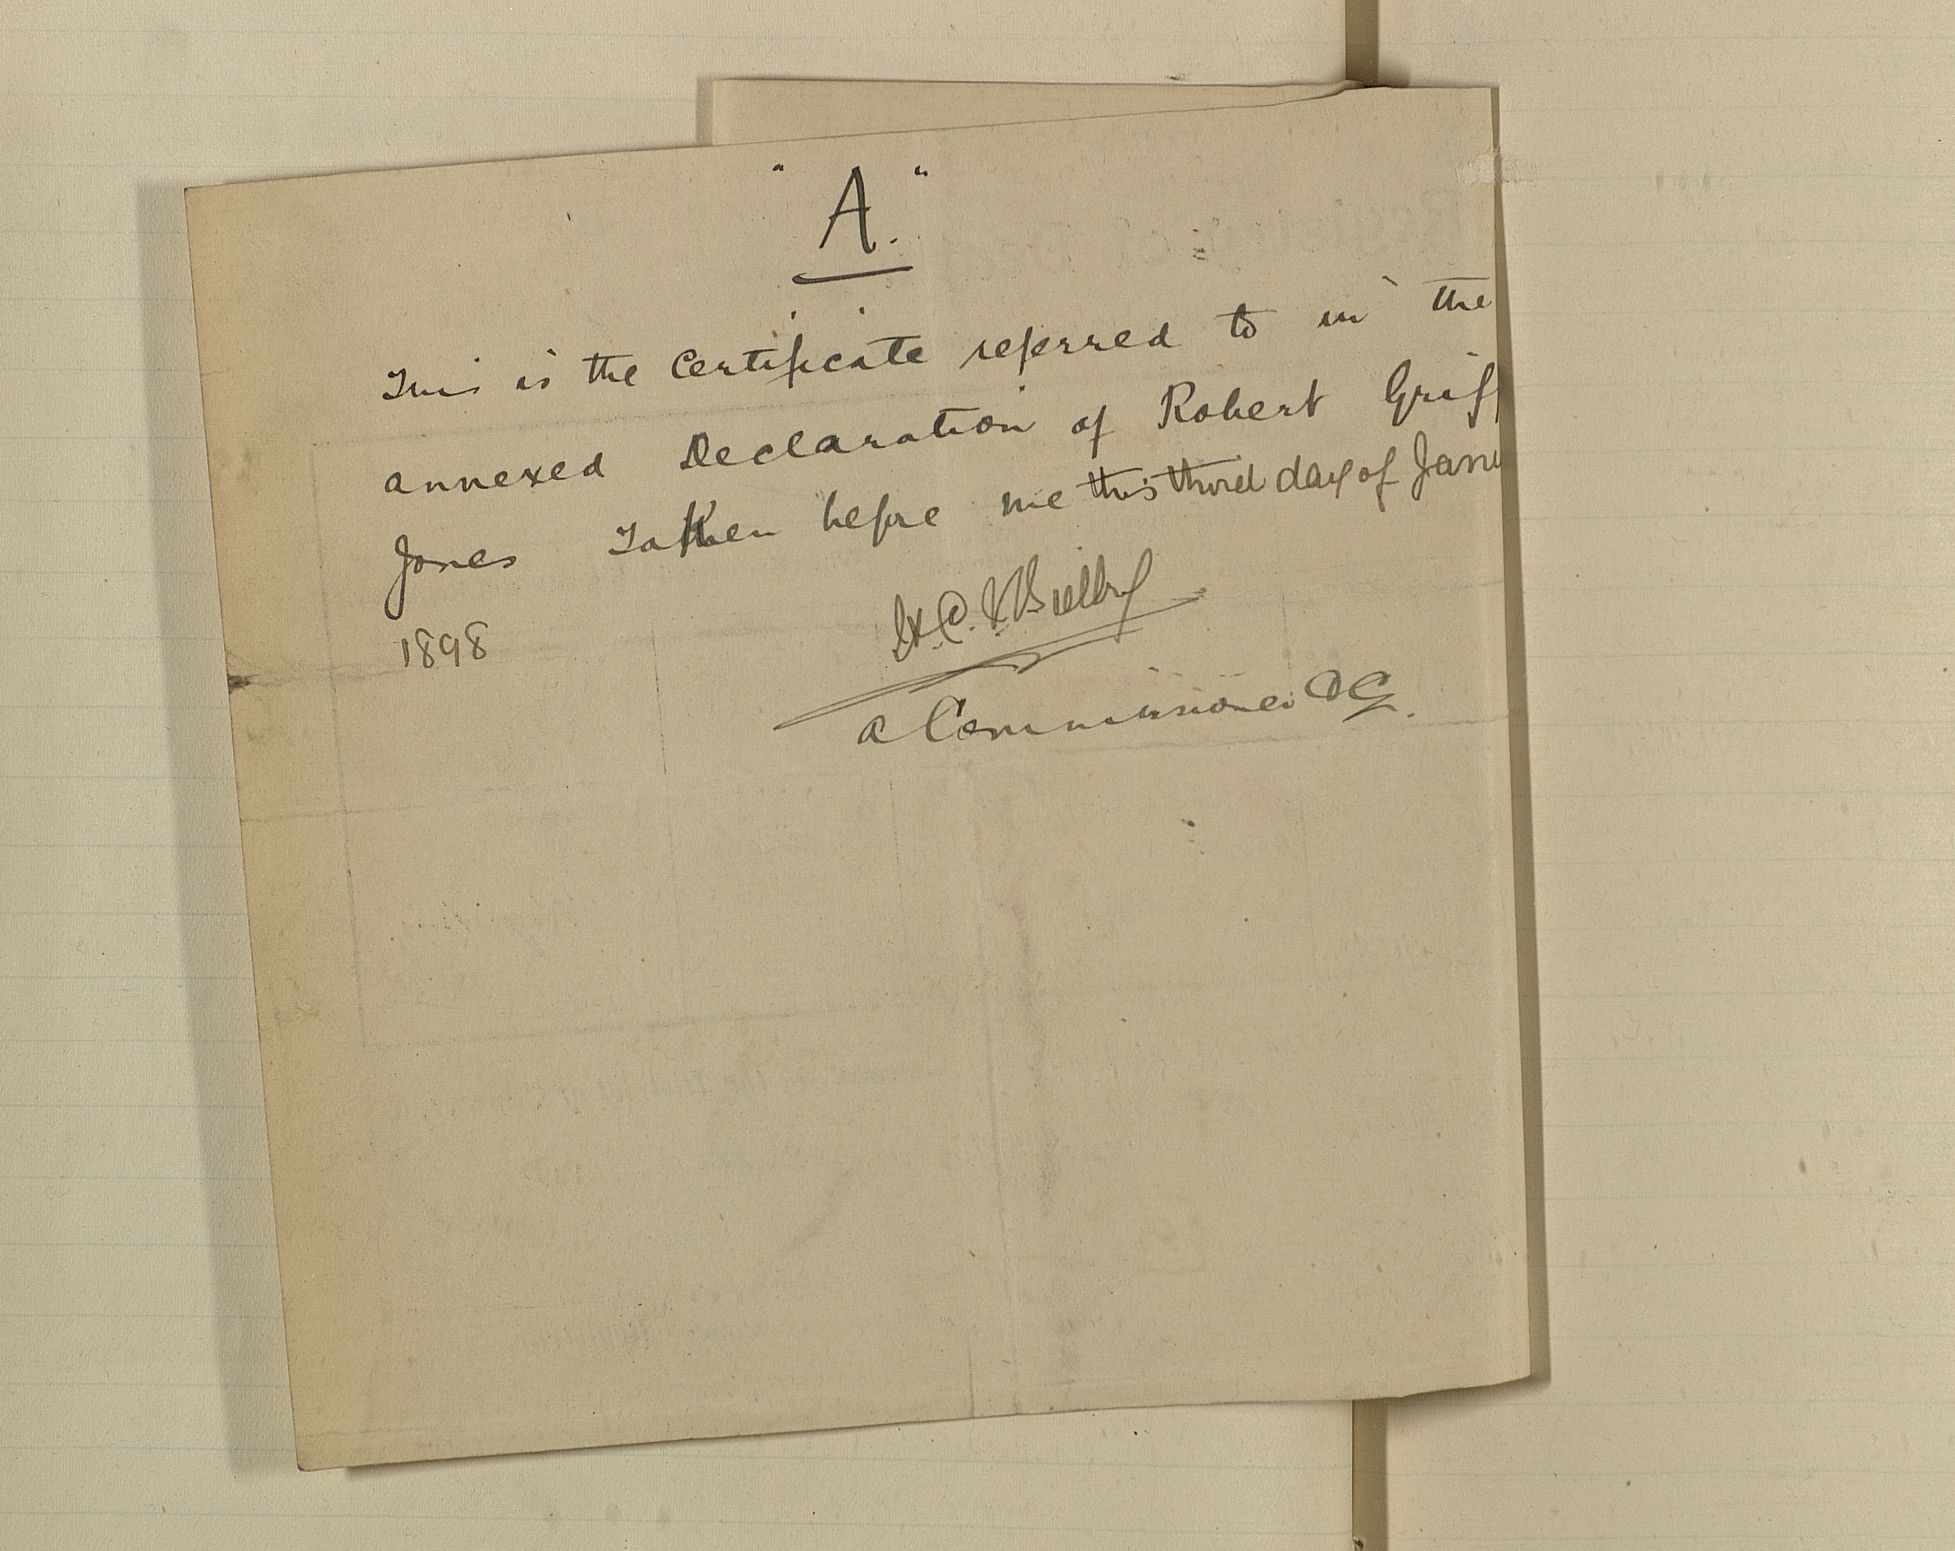 "A."
This is the Certificate referred to in the
annexed Declaration of Robert Griff
Jones Taken before me this third day of Janu
1898
a Commissioner &c.